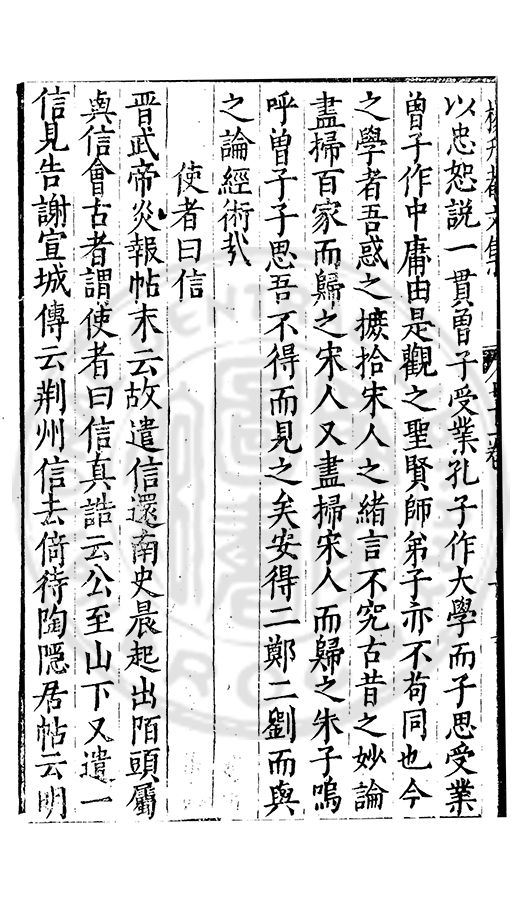 以忠恕說一貫曾子受業孔子作大學而子思受業
曾子作中庸由是觀之聖賢師弟子亦不茍同也今
之學者吾惑之摭拾宋人之緒言不究古昔之妙論
盡掃百家而歸之宋人又盡掃宋人而歸之朱子嗚
呼曾子子思吾不得而見之矣安得二鄭二劉而與
之論經術哉
使者曰信
晉武帝炎報帖末云故遣信還南史晨起出陌頭屬
與信會古者謂使者曰信真誥云公至山下又遣一
信見告謝宣城傳云荆州信去倚待陶隱居帖云明